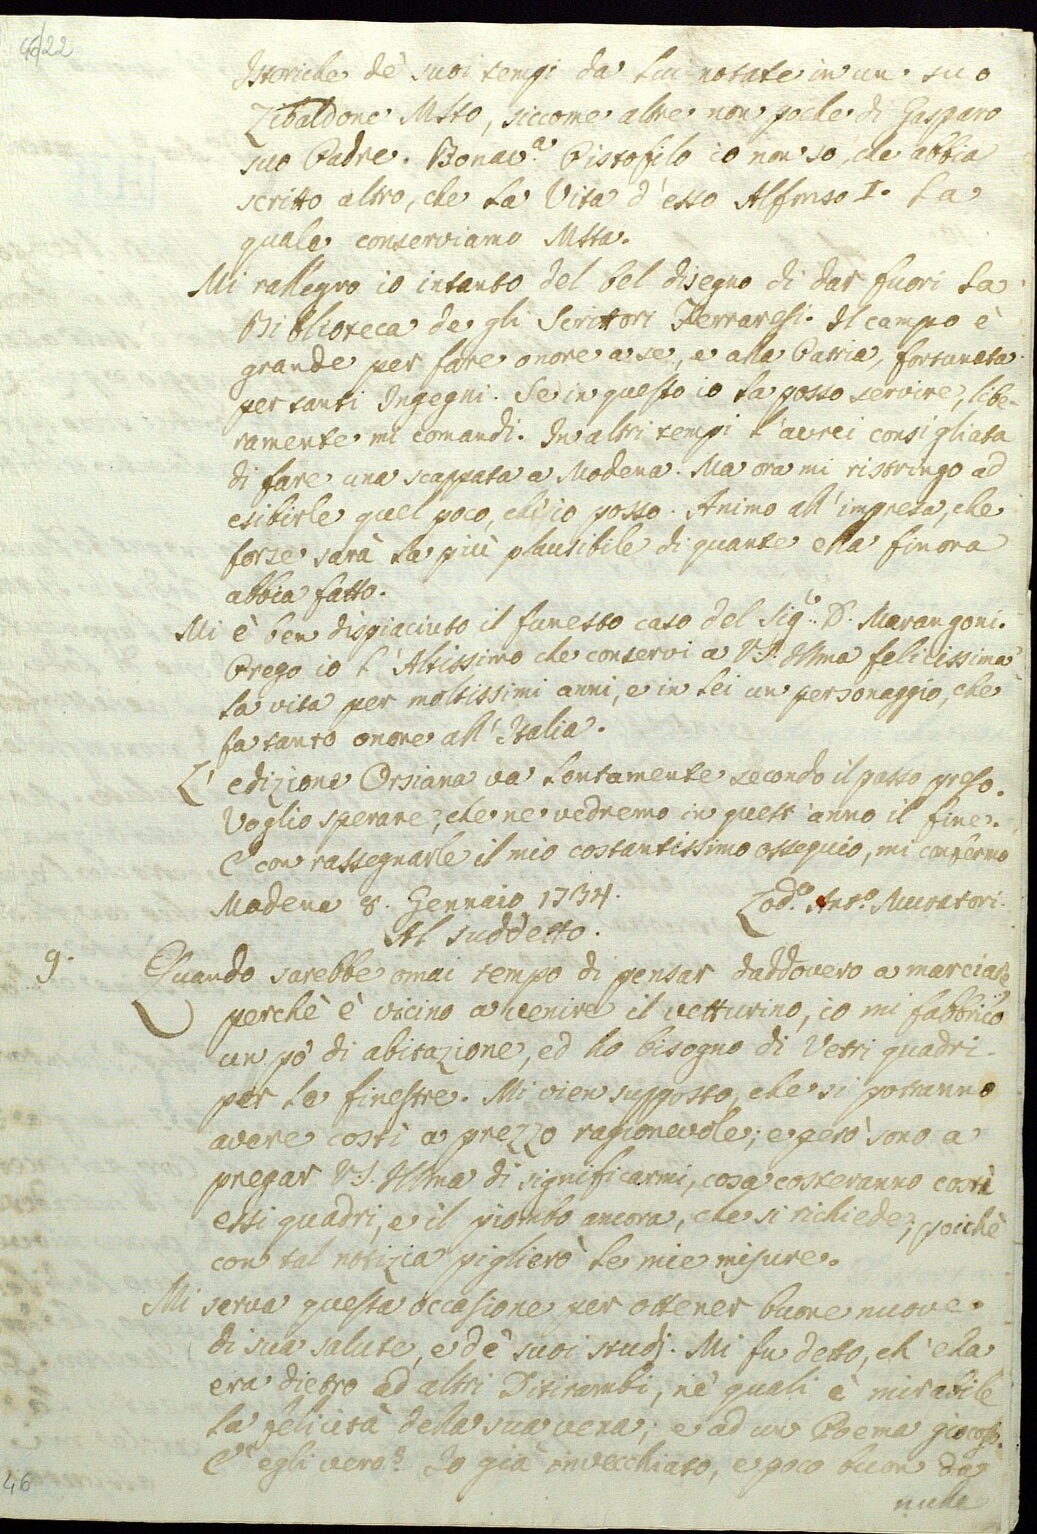 4622
Istoriche de' suoi tempi da lui notate in un suo
Zibaldone Msto, siccome altre non poche di Gasparo
suo Padre. Bonav.a Pistofilo io non so, che abbia
scritto altro, che la Vita d'esso Alfonso I. la
quale conserviamo Msta.
Mi rallegro io intanto del bel disegno di dar fuori la
Biblioteca de gli Scrittori Ferraresi. Il campo è
grande per fare onore a se, e alla Patria, fortunata
per tanti Ingegni. Se in questo io la posso servire, libe-
ramente mi comandi. In altri tempi l'avrei consigliata
di fare una scappata a Modena. Ma ora mi ristringo ad
esibirle quel poco, ch'io posso. Animo all'impresa, che
forse sarà la più plausibile di quante ella finora
abbia fatto.
Mi è ben dispiaciuto il funesto caso del Sig.r D. Marangoni.
Prego io l'Altissimo che conservi a V.S. Illma felicissima
la vita per moltissimi anni, e in lei un personaggio, che
fa tanto onore all'Italia.
L'edizione Orsiana va lentamente secondo il passo preso.
Voglio sperare, che ne vedremo in quest'anno il fine.
E con rassegnarle il mio costantissimo ossequio, mi confermo
Modena 8. Gennaio 1734. Lod.o Ant.o Muratori.
Al suddetto.
9. Quando sarebbe omai tempo di pensar daddovero a marciare
perchè è vicino a venire il vetturino, io mi fabbrico
un pò di abitazione, ed ho bisogno di Vetri quadri
per le finestre. Mi vien supposto, che si potranno
avere costì a prezzo ragionevole; e però sono a
pregar V.S. Illma di significarmi, cosa costeranno costì
essi quadri, e il piombo ancora, che si richiede; poichè
con tal notizia piglierò le mie misure.
Mi serva questa occasione per ottener buone nuove
di sua salute, e de' suoi studj. Mi fu detto, ch'ella
era dietro ad altri Ditirambi, ne' quali è mirabile
la felicità della sua vena; e ad un Poema giocoso.
E' egli vero? Io già invecchiato, e poco buon da
nulla
46